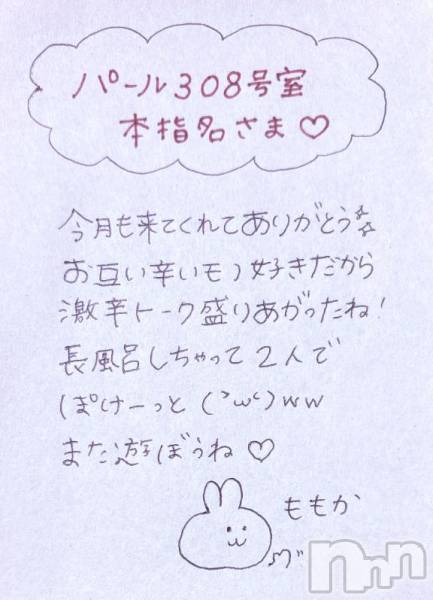 パール308号室
本指名さま♡
今月も来てくれてありがとう
お互い辛いモノ好きだから
激辛トーク盛りあがったね!
長風呂しちゃって2人で
ぽけーっと(>ω<)ww
また遊ぼうね♡
ももか